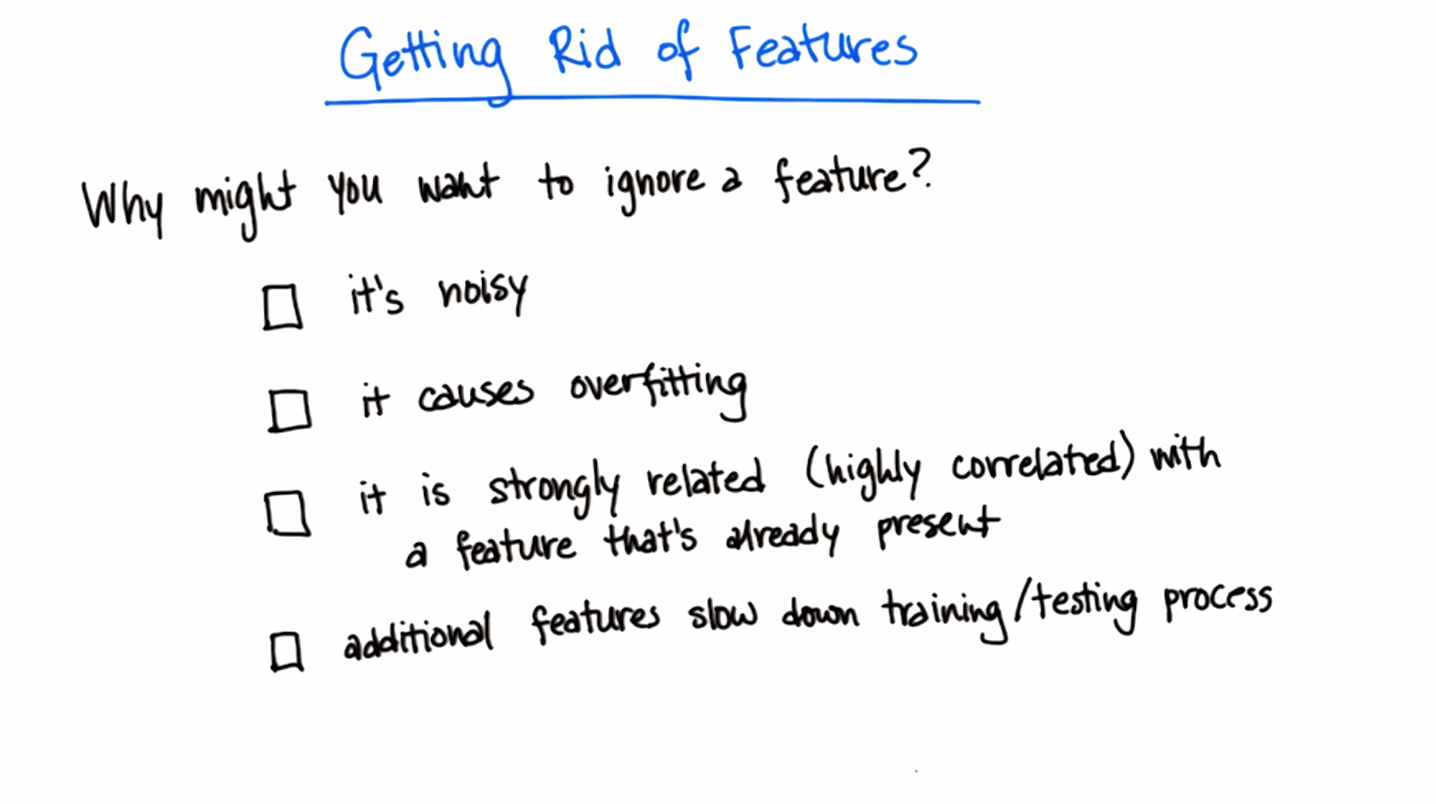 Getting Rid of Features
Why might you want to ignore a feature?
it's noisy
it causes overfitting
it is strongly related (highly correlated) with
a feature that's already present
additional features slow down training/testing process